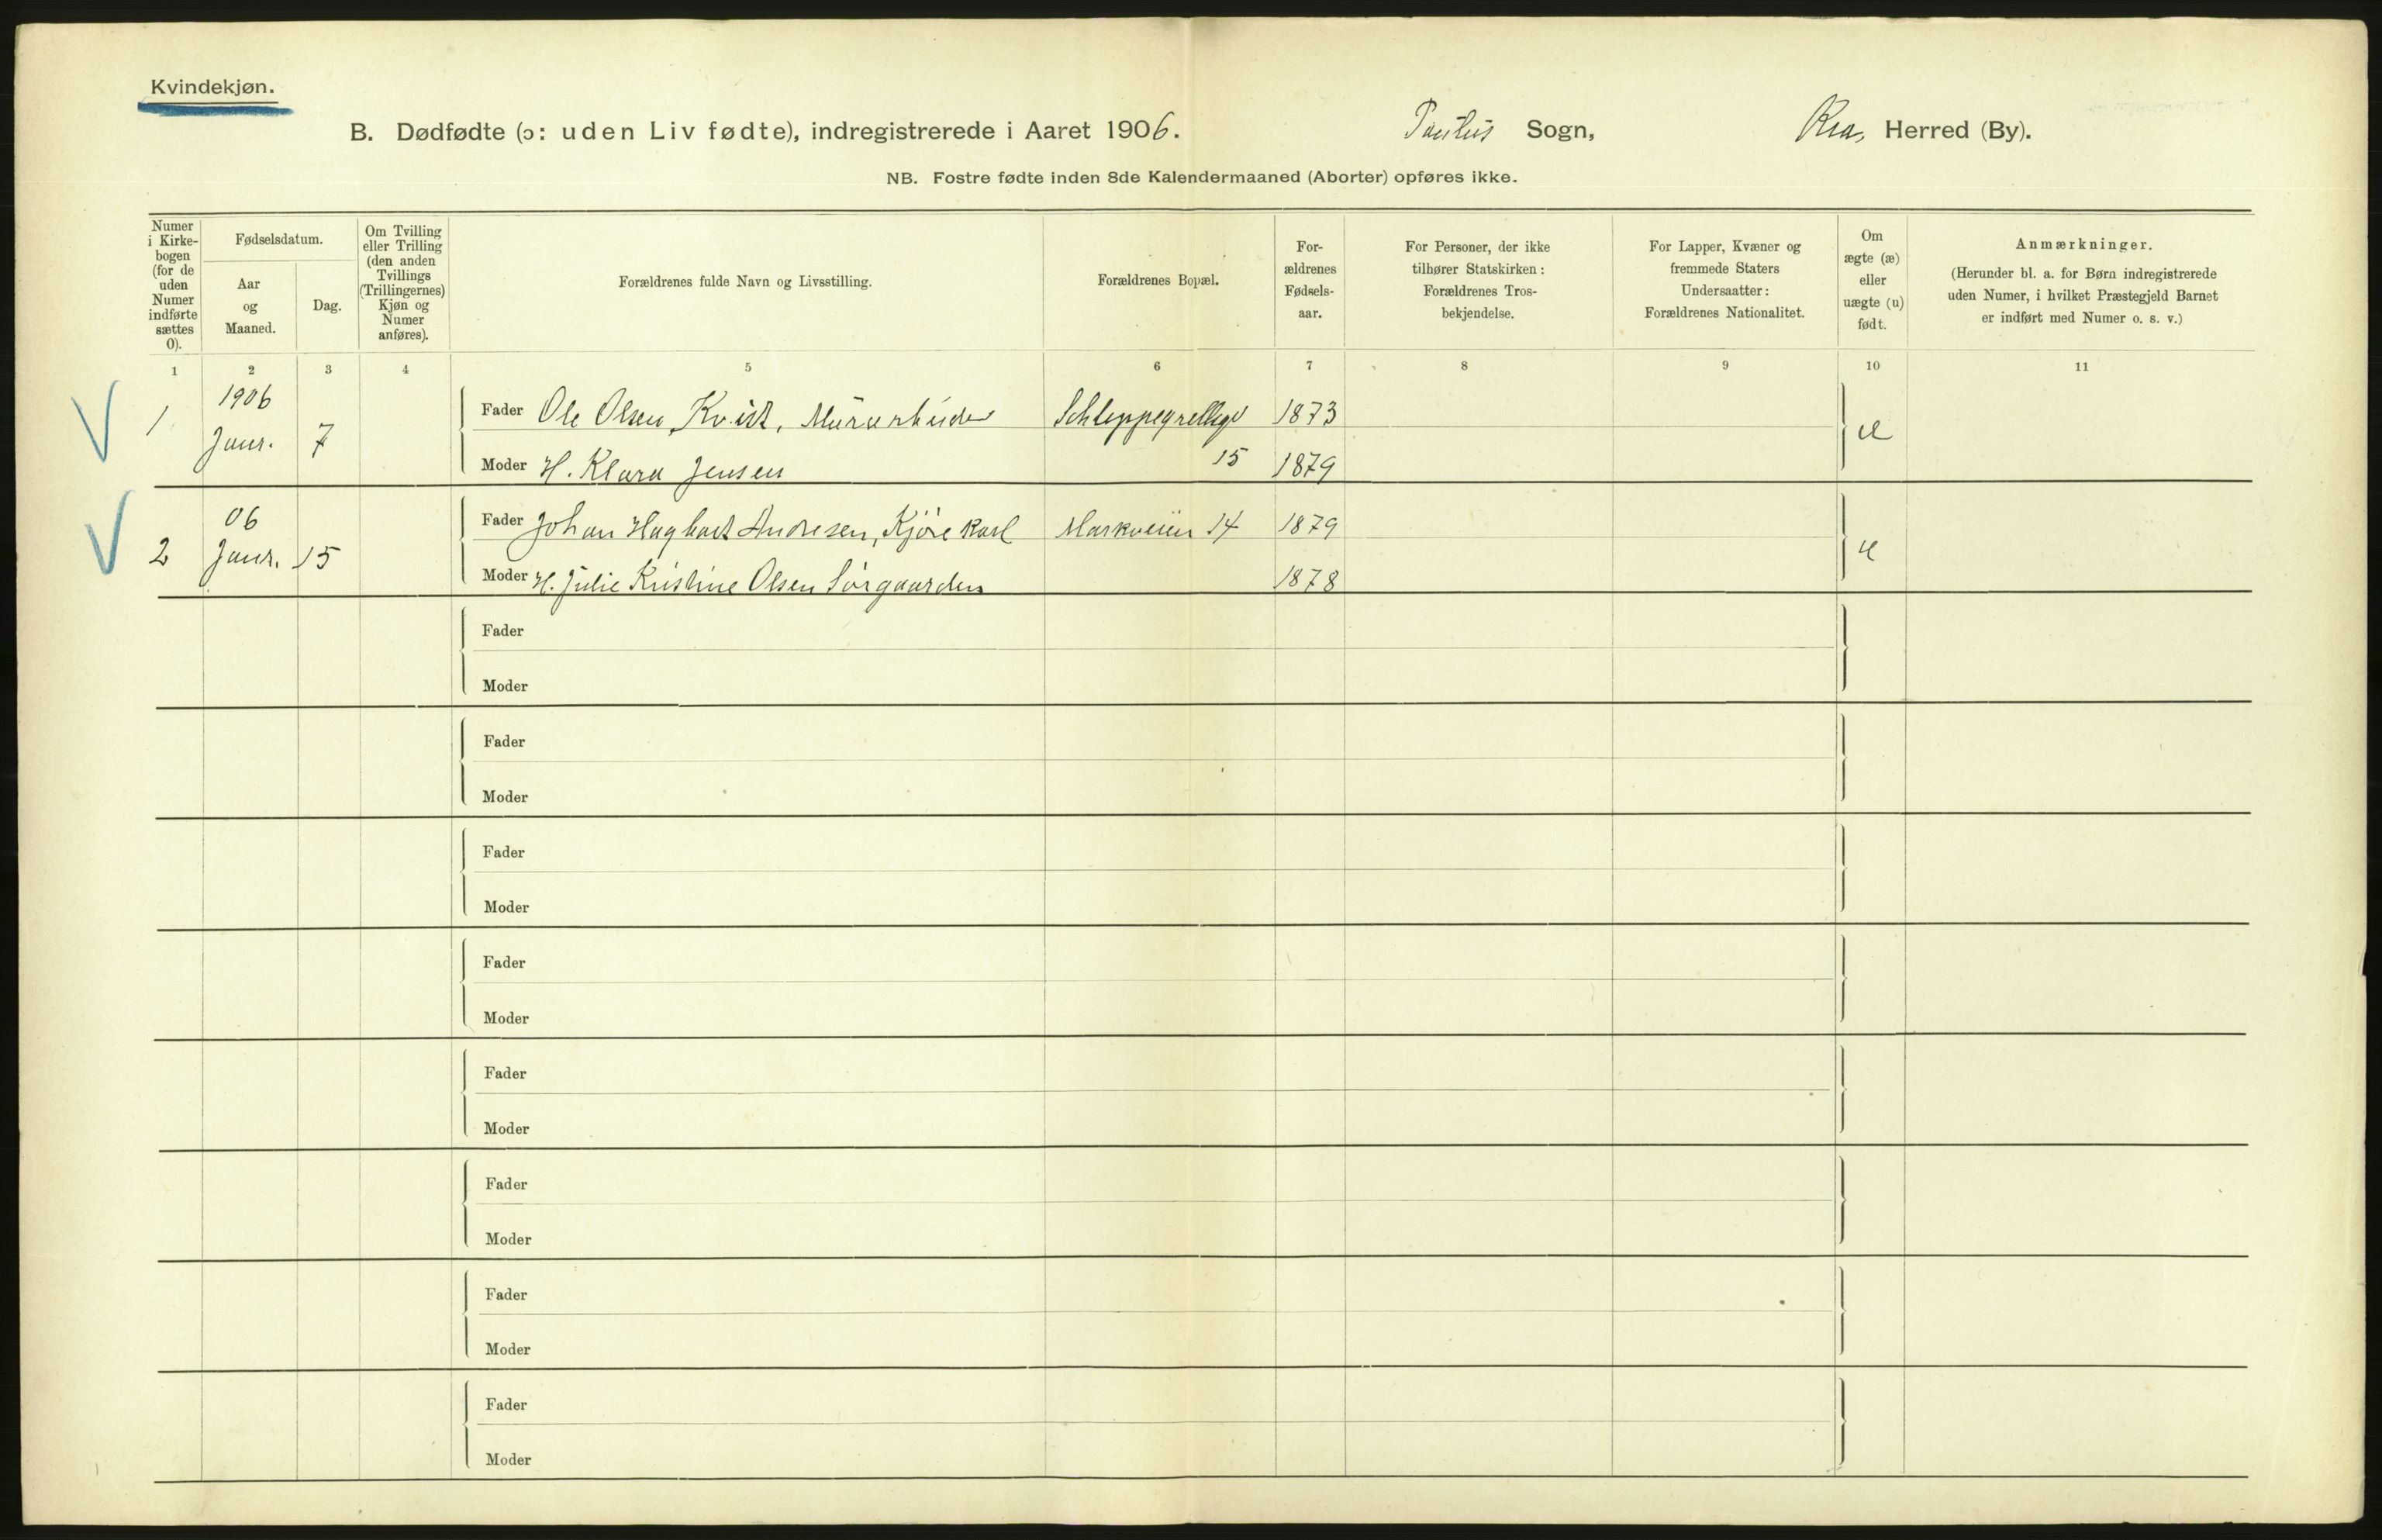 Kvindekjøn.
B. Dødfødte (ɔ: uden Liv fødte), indregistrerede i Aaret 1906. Paulus Sogn, Kra. Herred (By).
NB. Fostre fødte inden 8de Kalendermaaned (Aborter) opføres ikke.
Numer
i Kirke-
bogen
(for de
uden
Numer
indførte
sættes
0).
Fødselsdatum.
Aar
og
Maaned.
Dag.
Om Tvilling
eller Trilling
(den anden
Tvillings
(Trillingernes)
Kjøn og
Numer
anføres).
Forældrenes fulde Navn og Livsstilling.
Forældrenes Bopæl.
For-
ældrenes
Fødsels-
aar.
For Personer, der ikke
tilhører Statskirken:
Forældrenes Tros-
bekjendelse.
For Lapper, Kvæner og
fremmede Staters
Undersaatter:
Forældrenes Nationalitet.
Om
ægte (æ)
eller
uægte (u)
født.
Anmærkninger.
(Herunder bl. a. for Børn indregistrerede
uden Numer, i hvilket Præstegjeld Barnet
er indført med Numer o. s. v.)
1 2 3 4 5 6 7 8 9 10 11
1 1906 Janr. 7
Fader Ole Olsen Kvist, Murarbeider Schleppegrellsgd 1873
Moder H. Klara Jensen 15 1879
2 06 Janr. 15
Fader Johan Hagbart Andresen, Kjørekarl Markveien 14 1879
Moder H. Julie Kristine Olsen Sørgaarden 1878
Fader
Moder
Fader
Moder
Fader
Moder
Fader
Moder
Fader
Moder
Fader
Moder
Fader
Moder
Fader
Moder